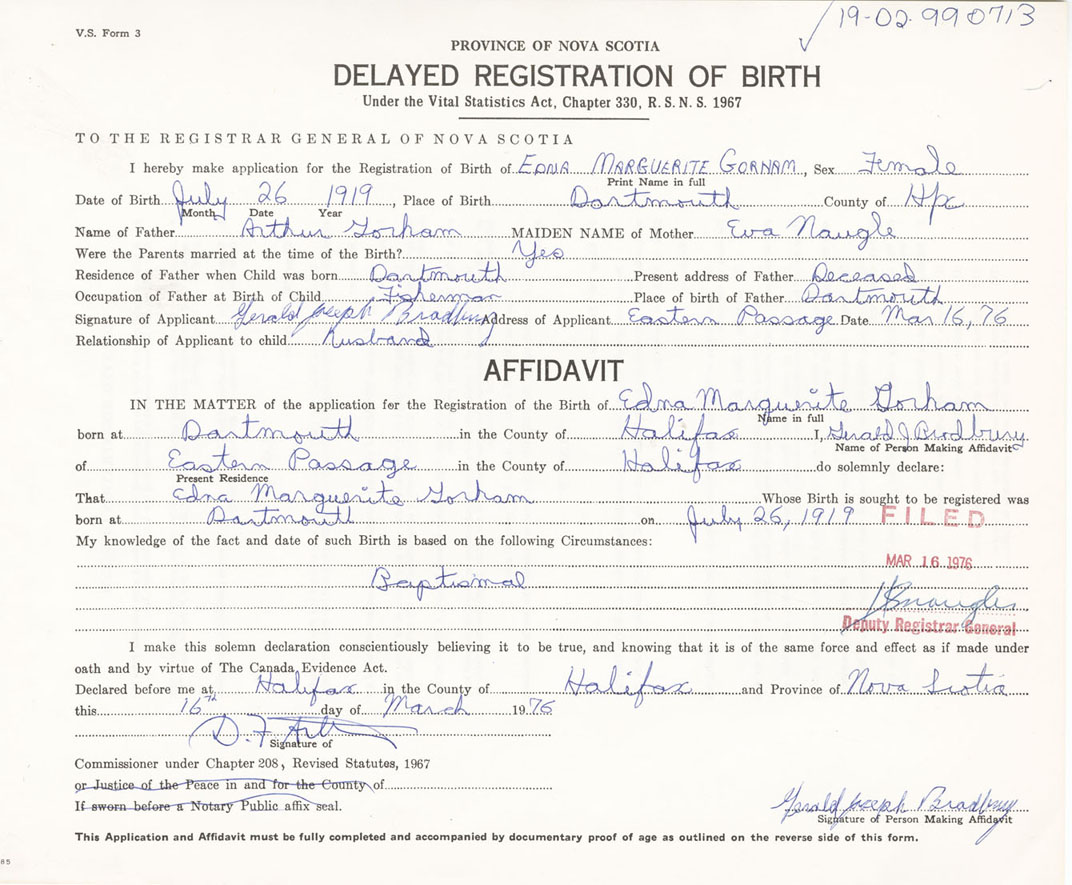 19-02-990713
V.S. Form 3
PROVINCE OF NOVA SCOTIA
DELAYED REGISTRATION OF BIRTH
Under the Vital Statistics Act, Chapter 330, R.S.N.S. 1967
TO THE REGISTRAR GENERAL OF NOVA SCOTIA
I hereby make application for the Registration of Birth of EDNA MARGUERITE GORHAM, Sex Female
Print Name in full
Date of Birth July 26 1919, Place of Birth Dartmouth County of Hfx
Month Date Year
Name of Father Arthur Gorham MAIDEN NAME of Mother Eva Naugle
Were the Parents married at the time of the Birth? Yes
Residence of Father when Child was born Dartmouth Present address of Father Deceased
Occupation of Father at Birth of Child Fisherman Place of birth of Father Dartmouth
Signature of Applicant Gerald Joseph Bradbury Address of Applicant Eastern Passage Date Mar 16, 76
Relationship of Applicant to child Husband
AFFIDAVIT
IN THE MATTER of the application for the Registration of the Birth of Edna Marguerite Gorham
Name in full
born at Dartmouth in the County of Halifax I, Gerald J Bradbury
Name of Person Making Affidavit
of Eastern Passage in the County of Halifax do solemnly declare:
Present Residence
That Edna Marguerite Gorham Whose Birth is sought to be registered was
born at Dartmouth on July 26, 1919 FILED
My knowledge of the fact and date of such Birth is based on the following Circumstances:
MAR 16 1976
Baptismal
Deputy Registrar General
I make this solemn declaration conscientiously believing it to be true, and knowing that it is of the same force and effect as if made under
oath and by virtue of The Canada Evidence Act.
Declared before me at Halifax in the County of Halifax and Province of Nova Scotia
this 16th day of March 1976
Signature of
Commissioner under Chapter 208, Revised Statutes, 1967
or Justice of the Peace in and for the County of
If sworn before a Notary Public affix seal.
Gerald Joseph Bradbury
Signature of Person Making Affidavit
This Application and Affidavit must be fully completed and accompanied by documentary proof of age as outlined on the reverse side of this form.
85